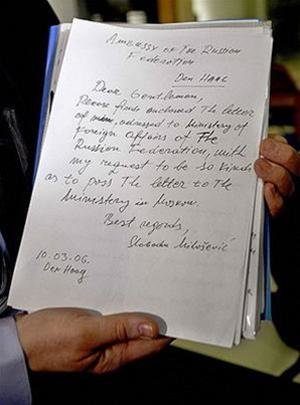 Embassy of the Russian
Federation
Den Haag
Dear Gentleman,
Please find enclosed the letter
of mine, adressed to Ministery of
Foreign Affairs of The
Russian Federation, with
my request to be so kind
as to pass the letter to the
Ministery in Moscow.
Best regards,
Slobodan Milošević
10.03.06.
Den Haag